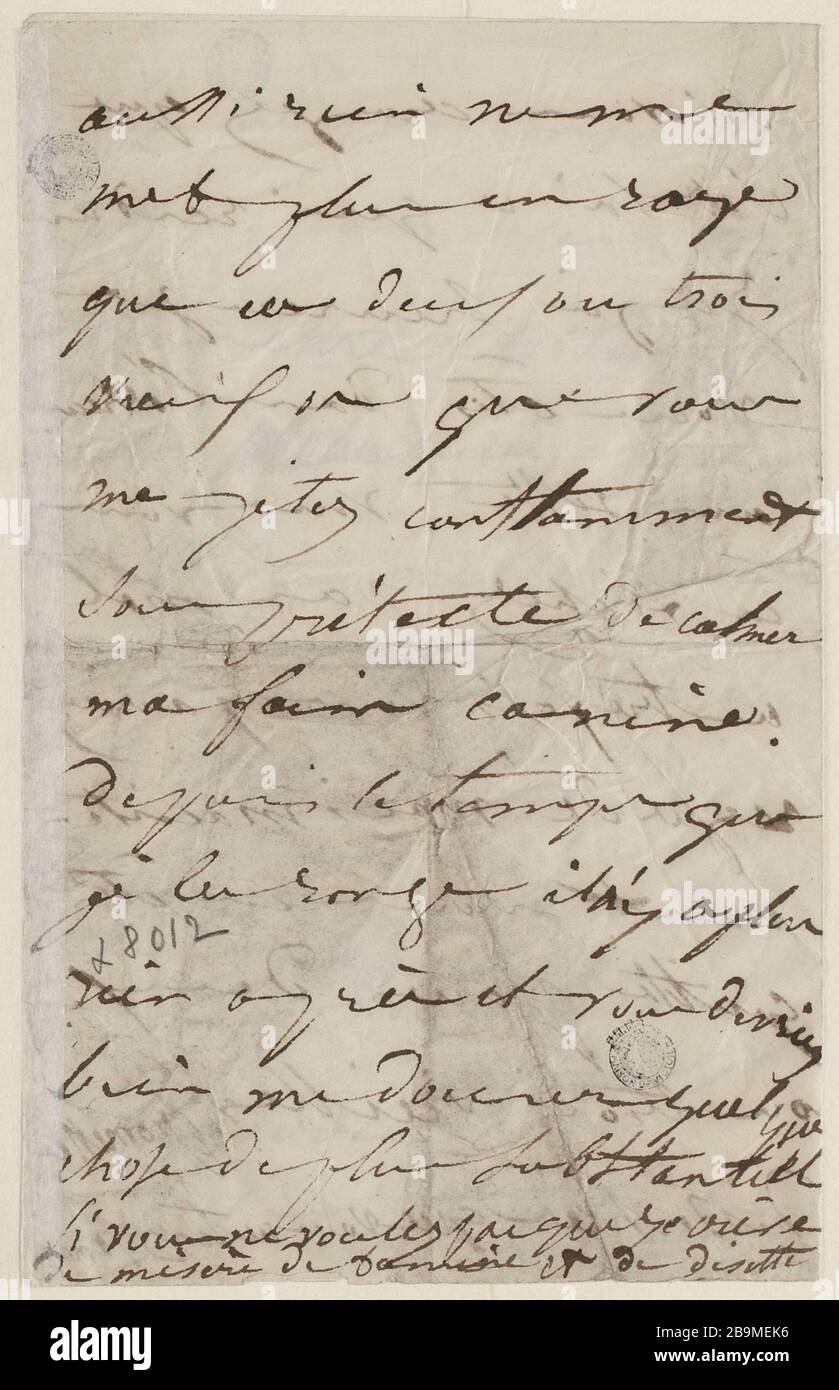 aussi rien ne me
met plus en rage
que ces deux ou trois
vieux os que vous
me jetez constamment
sous prétexte de calmer
ma faim canine.
Depuis le temps que
je les ronge il n'y a plus
α 8012
rien après et vous devriez
bien me donner quelque
chose de plus substantiel
si vous ne voulez pas que je crève
de misère de famine et de disette
alamy
Image ID: 2B9MEK6
www.alamy.com